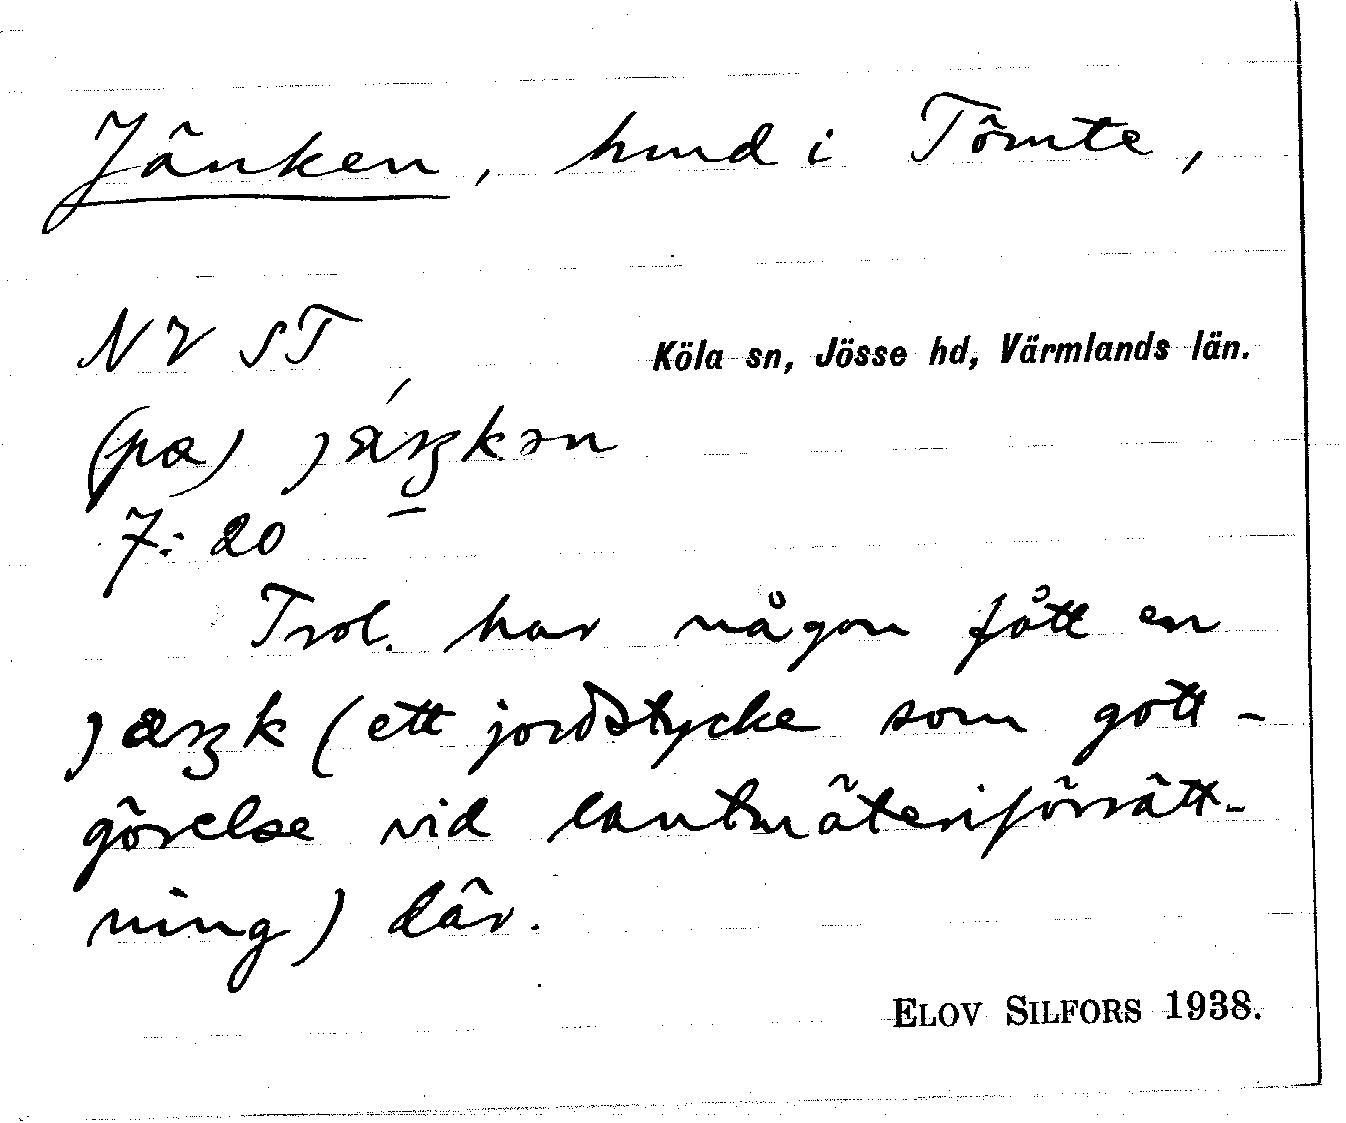 Jänken, hmd i Tömte,
NV ST
Köla sn, Jösse hd, Värmlands län.
(pa)
7:20
Trol. har någon fått en
(ett jordstycke som gott-
görelse vid lantmäteriförrätt-
ning) där.
ELOV SILFORS 1938.